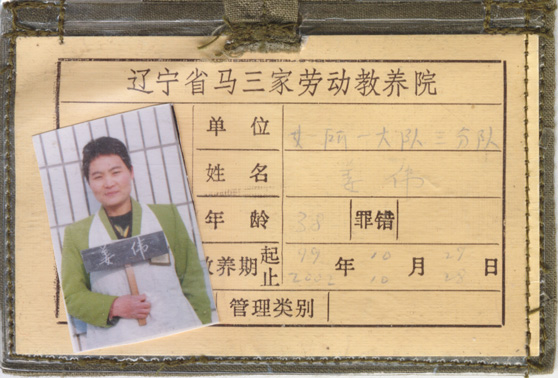 辽宁省马三家劳动教养院
单 位 女所一大队三分队
姓 名 姜 伟
年 龄 38 罪错
教养期 起 99 年 10 月 29 日
止 2002 10 28
管理类别
姜 伟